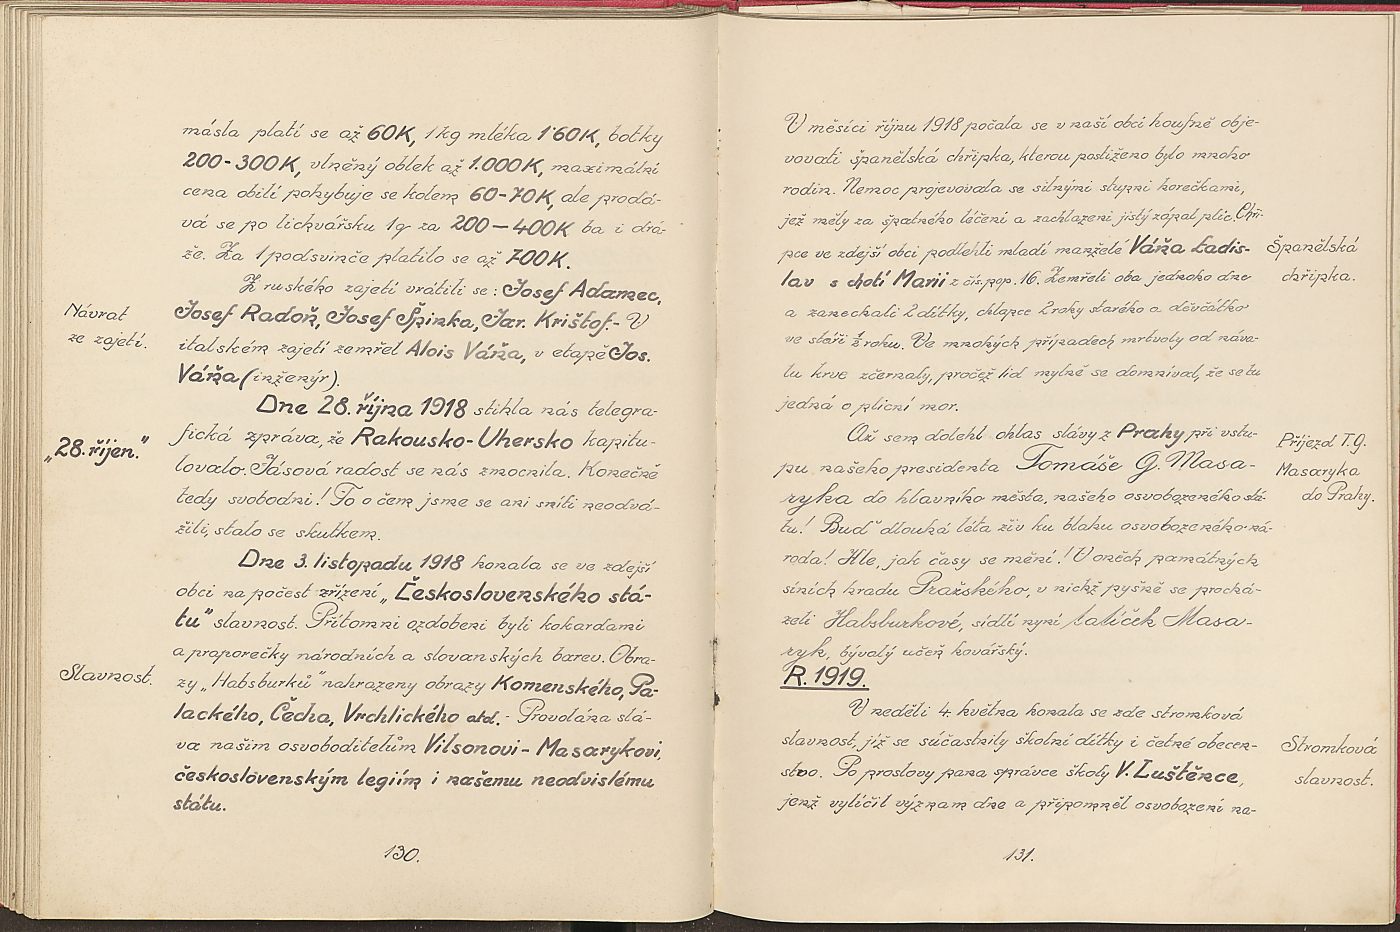 másla platí se až 60K, 1 kg mléka 1'60K, botky
200-300K, vlněný oblek až 1.000K, maximální
cena obilí pohybuje se kolem 60-70K, ale prodá-
vá se po lichvářsku 1q za 200-400K ba i drá-
že. Za 1 podsvinče platilo se až 700K.
Návrat
ze zajetí.
Z ruského zajetí vrátili se: Josef Adamec,
Josef Radoň, Josef Špinka, Jar. Krištof.- V
italském zajetí zemřel Alois Váňa, v etapě Jos.
Váňa (inženýr).
„28. říjen."
Dne 28. října 1918 stihla nás telegra-
fická zpráva, že Rakousko-Uhersko kapitu-
lovalo. Jásová radost se nás zmocnila. Konečně
tedy svobodni! To o čem jsme se ani sníti neodvá-
žili, stalo se skutkem.
Slavnost.
Dne 3. listopadu 1918 konala se ve zdejší
obci na počest zřízení „Československého stá-
tu" slavnost. Přítomni ozdobeni byli kokardami
a praporečky národních a slovanských barev. Obra-
zy „Habsburků" nahrazeny obrazy Komenského, Pa-
lackého, Čecha, Vrchlického atd.- Provolána slá-
va našim osvoboditelům Vilsonovi - Masarykovi,
československým legiím i našemu neodvislému
státu.
130.
V měsíci říjnu 1918 počala se v naší obci houfně obje-
vovati španělská chřipka, kterou postiženo bylo mnoho
rodin. Nemoc projevovala se silnými stupni horečkami,
jež měly za špatného léčení a zachlazení jistý zápal plic. Chři-
pce ve zdejší obci podlehli mladí manželé Váňa Ladis-
lav s chotí Marií z čís. pop. 16. Zemřeli oba jednoho dne
a zanechali 2 dítky, chlapce 2 roky starého a děvčátko
ve stáří ½ roku. Ve mnohých případech mrtvoly od náva-
lu krve zčernaly, pročež lid mylně se domníval, že se tu
jedná o plicní mor.
Španělská
chřipka.
Až sem dolehl ohlas slávy z Prahy při vstu-
pu našeho presidenta Tomáše G. Masa-
ryka do hlavního města, našeho osvobozeného stá-
tu! Buď dlouhá léta živ ku blahu osvobozeného ná-
roda! Hle, jak časy se mění! V oněch památných
síních hradu Pražského, v nichž pyšně se prochá-
zeli Habsburkové, sídlí nyní tatíček Masa-
ryk, bývalý učeň kovářský.
Příjezd T.G.
Masaryka
do Prahy.
R. 1919.
V neděli 4. května konala se zde stromková
slavnost, jíž se súčastnily školní dítky i četné obecen-
stvo. Po proslovu pana správce školy V. Luštěnce,
jenž vylíčil význam dne a připomněl osvobození ná-
Stromková
slavnost.
131.